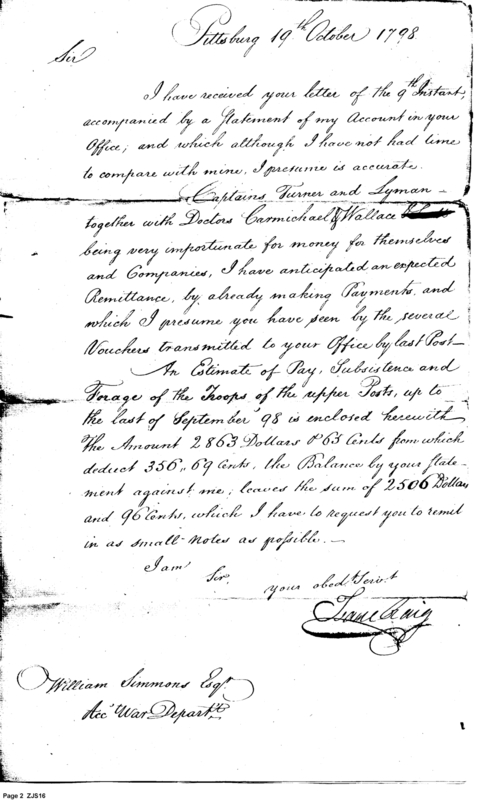 Pittsburg 19th October 1798
Sir
I have received your letter of the 9th Instant,
accompanied by a Statement of my Account in your
Office; and which although I have not had time
to compare with mine, I presume is accurate.
Captains Turner and Lyman –
together with Doctors Carmichael & Wallace
being very importunate for money for themselves
and Companies, I have anticipated an expected
Remittance, by already making Payments, and
which I presume you have seen by the several
Vouchers transmitted to your Office by last Post –
An Estimate of Pay, Subsistence and
Forage of the Troops of the upper Posts, up to
the last of September 98 is enclosed herewith
The Amount 2863 Dollars & 65 Cents from which
deduct 356„69 Cents, the Balance by your State-
ment against me; leaves the sum of 2506 Dollars
and 96 Cents, which I have to request you to remit
in as small notes as possible. —
I am
Sir
your obedt Servt
Isaac Craig
William Simmons Esqr
Acct War Departt
Page 2 ZJS16